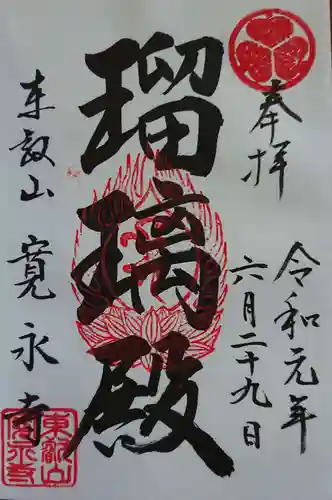 奉拝
令和元年
六月二十九日
瑠璃殿
東叡山
寛永寺
東叡山
寛永寺